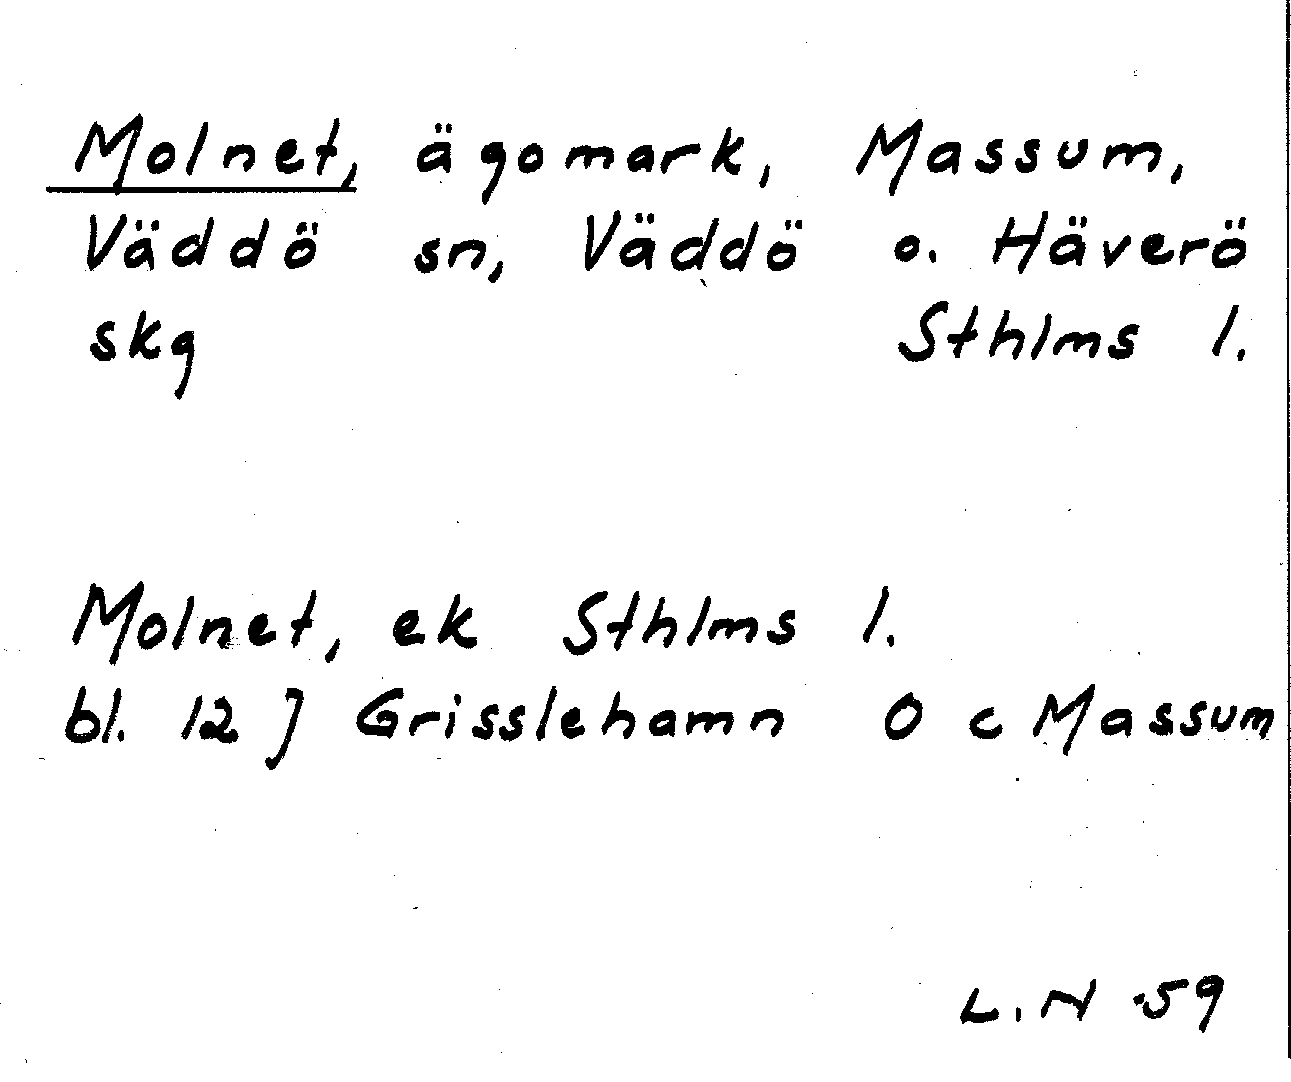 Molnet, ägomark, Massum,
Väddö sn, Väddö o. Häverö
skg Sthlms l.
Molnet, ek Sthlms l.
bl. 12 J Grisslehamn O c Massum
L.N -59